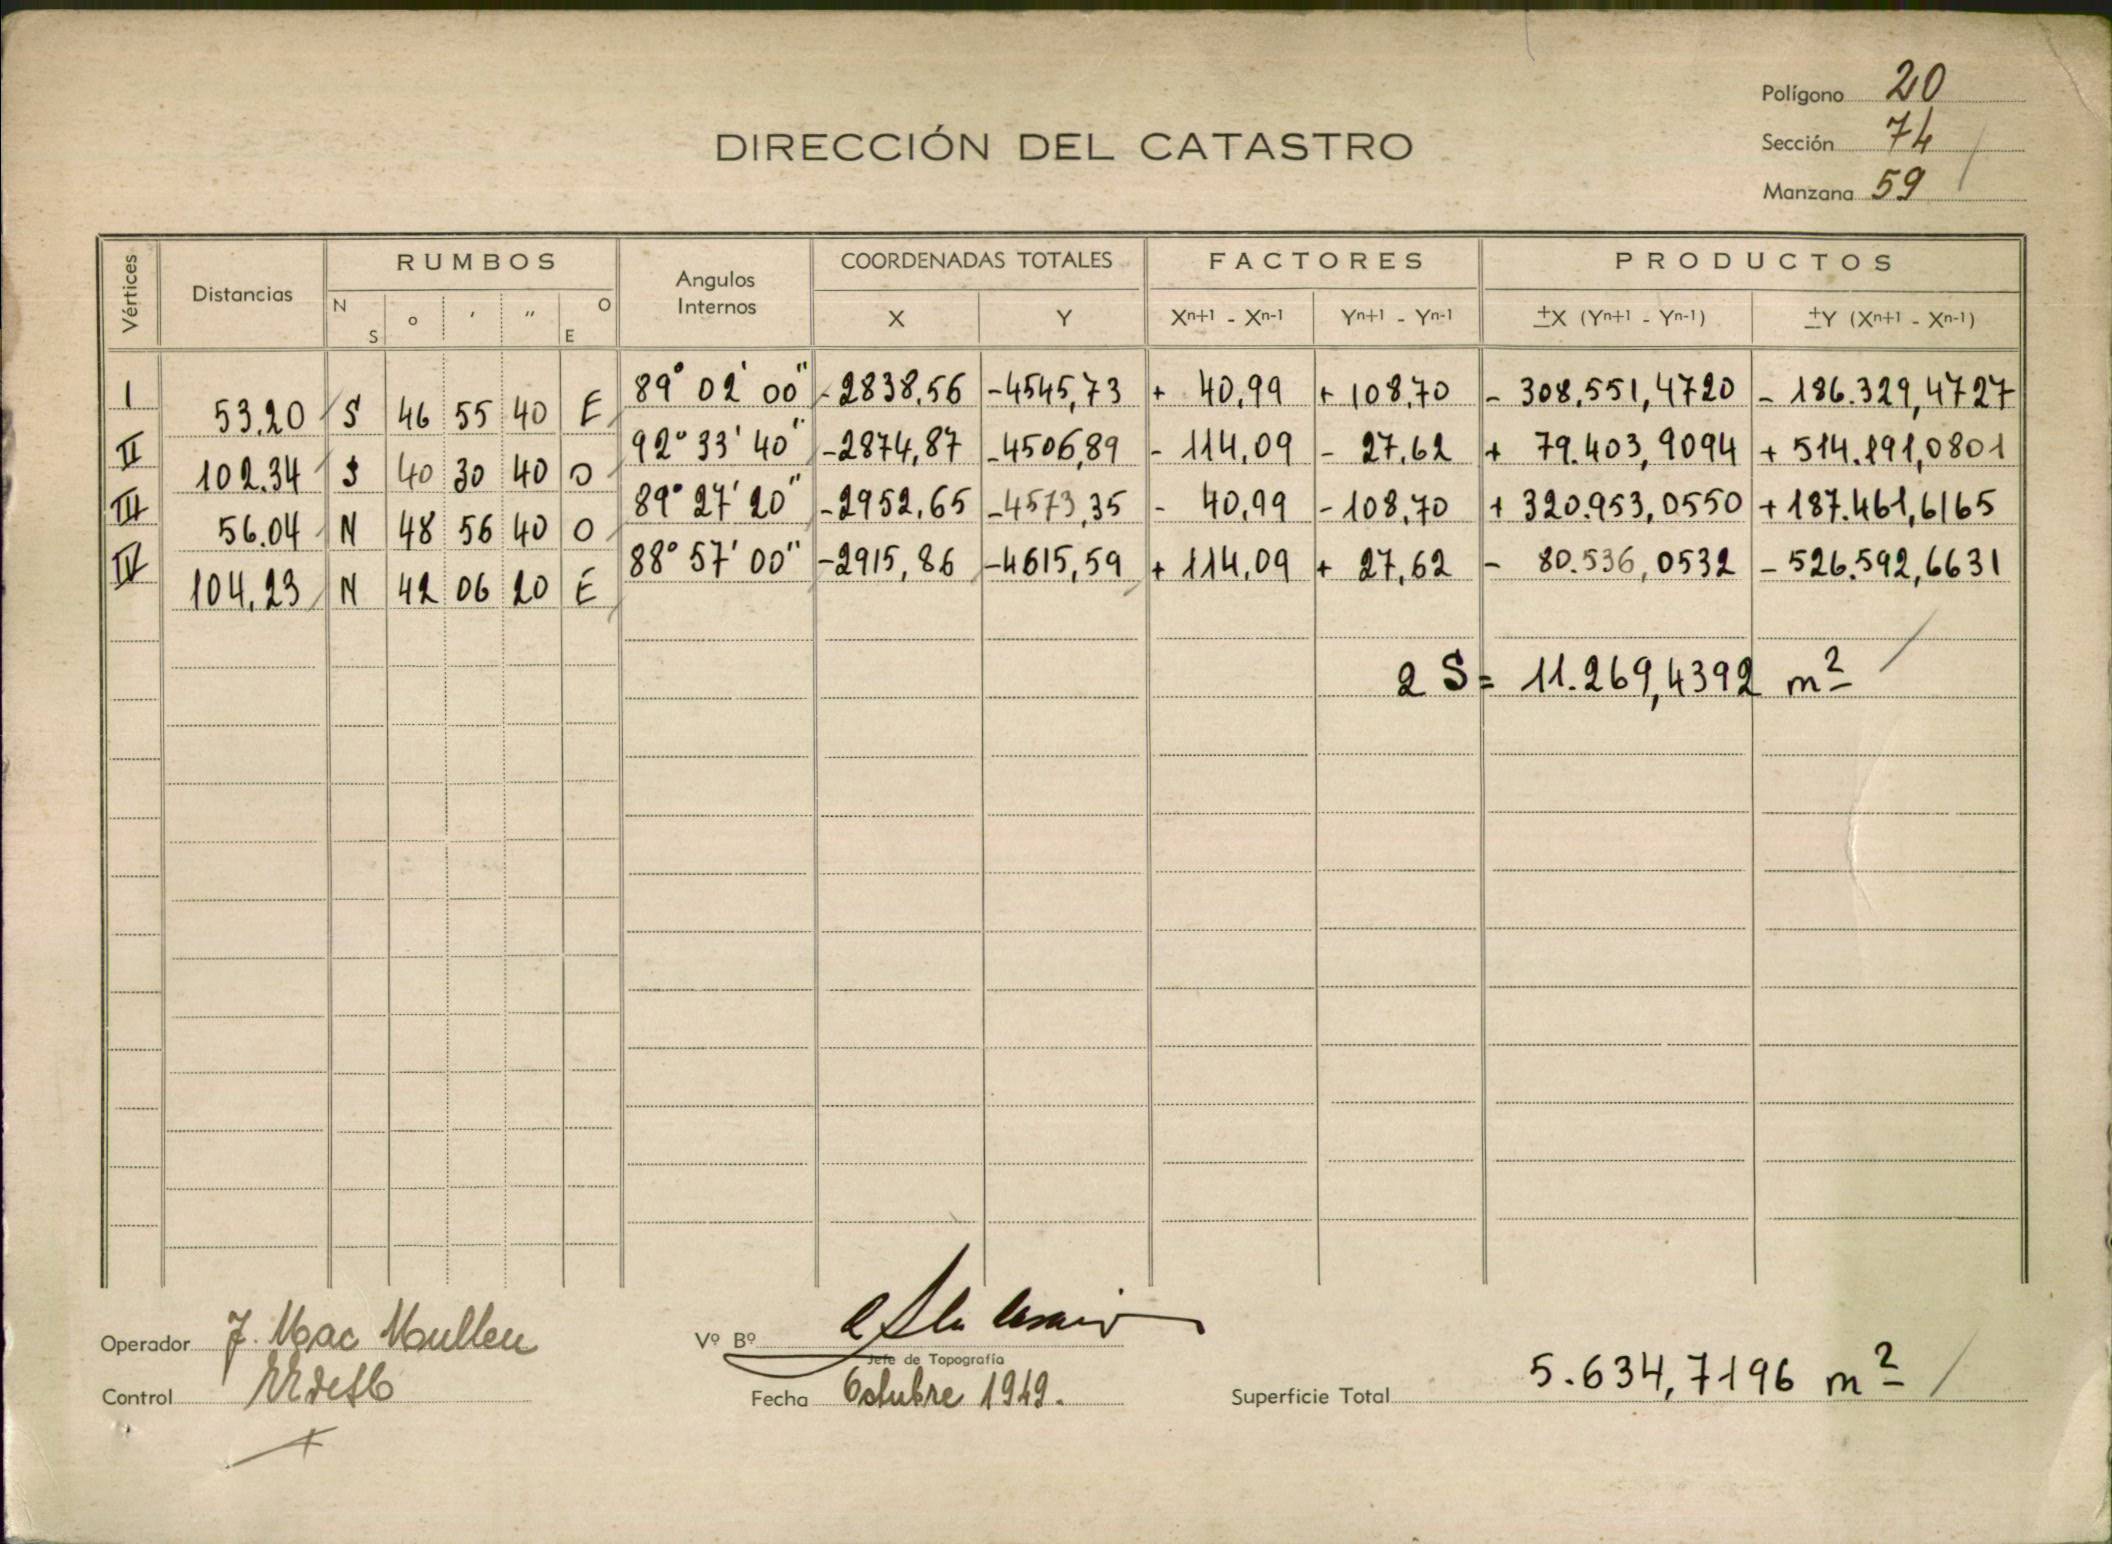 Polígono 20
DIRECCIÓN DEL CATASTRO
Sección 74
Manzana 59
Vértices Distancias RUMBOS Angulos Internos COORDENADAS TOTALES FACTORES PRODUCTOS
N S ° ' " O E X Y Xn+1 - Xn-1 Yn+1 - Yn-1 ±X (Yn+1 - Yn-1) ±Y (Xn+1 - Xn-1)
I 89° 02' 00" -2838,56 -4545,73 + 40,99 + 108,70 - 308.551,4720 - 186.329,4727
53.20 S 46 55 40 E
II 92° 33' 40" -2874,87 -4506,89 - 114,09 - 27,62 + 79.403,9094 + 514.191,0801
102.34 S 40 30 40 O
III 89° 27' 20" -2952,65 -4573,35 - 40,99 - 108,70 + 320.953,0550 + 187.461,6165
56.04 N 48 56 40 O
IV 88° 57' 00" -2915,86 -4615,59 + 114,09 + 27,62 - 80.536,0532 - 526.592,6631
104,23 N 42 06 20 E
2 S = 11.269,4392 m2
Operador J. Mac Mullen
Vº Bº
Jefe de Topografía
Control
Fecha Octubre 1949.
Superficie Total 5.634,7196 m2